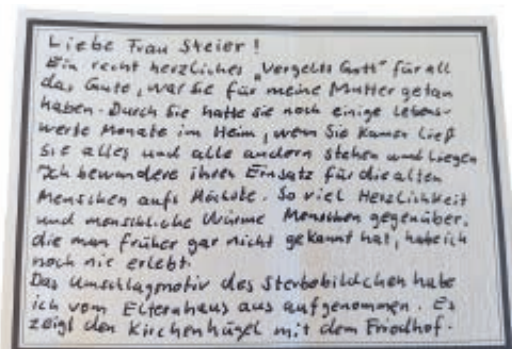 Liebe Frau Steier!
Ein recht herzliches „Vergelts Gott" für all
das Gute, was Sie für meine Mutter getan
haben. Durch Sie hatte sie noch einige lebens-
werte Monate im Heim, wenn Sie kamen ließ
sie alles und alle andern stehen und liegen
Ich bewundere ihren Einsatz für die alten
Menschen aufs Höchste. So viel Herzlichkeit
und menschliche Wärme Menschen gegenüber,
die man früher gar nicht gekannt hat, habe ich
noch nie erlebt.
Das Umschlagmotiv des Sterbebildchen habe
ich vom Elternhaus aus aufgenommen. Es
zeigt den Kirchenhügel mit dem Friedhof.